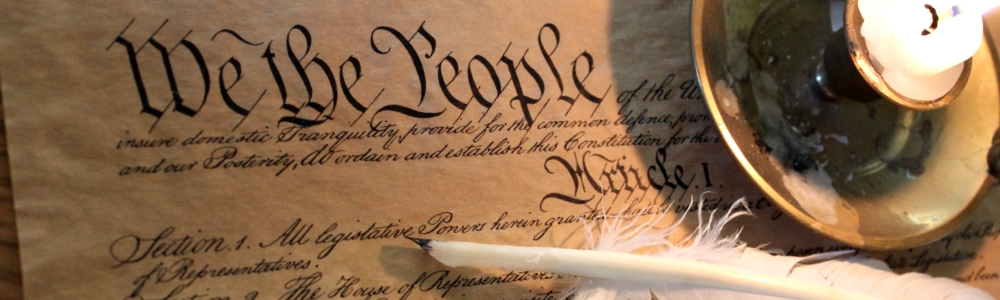 We the People of the U
insure domestic Tranquility, provide for the common defence, pro
and our Posterity, do ordain and establish this Constitution for the
Article. I.
Section. 1. All legislative Powers herein granted
of Representatives.
Section 2. The House of Representatives